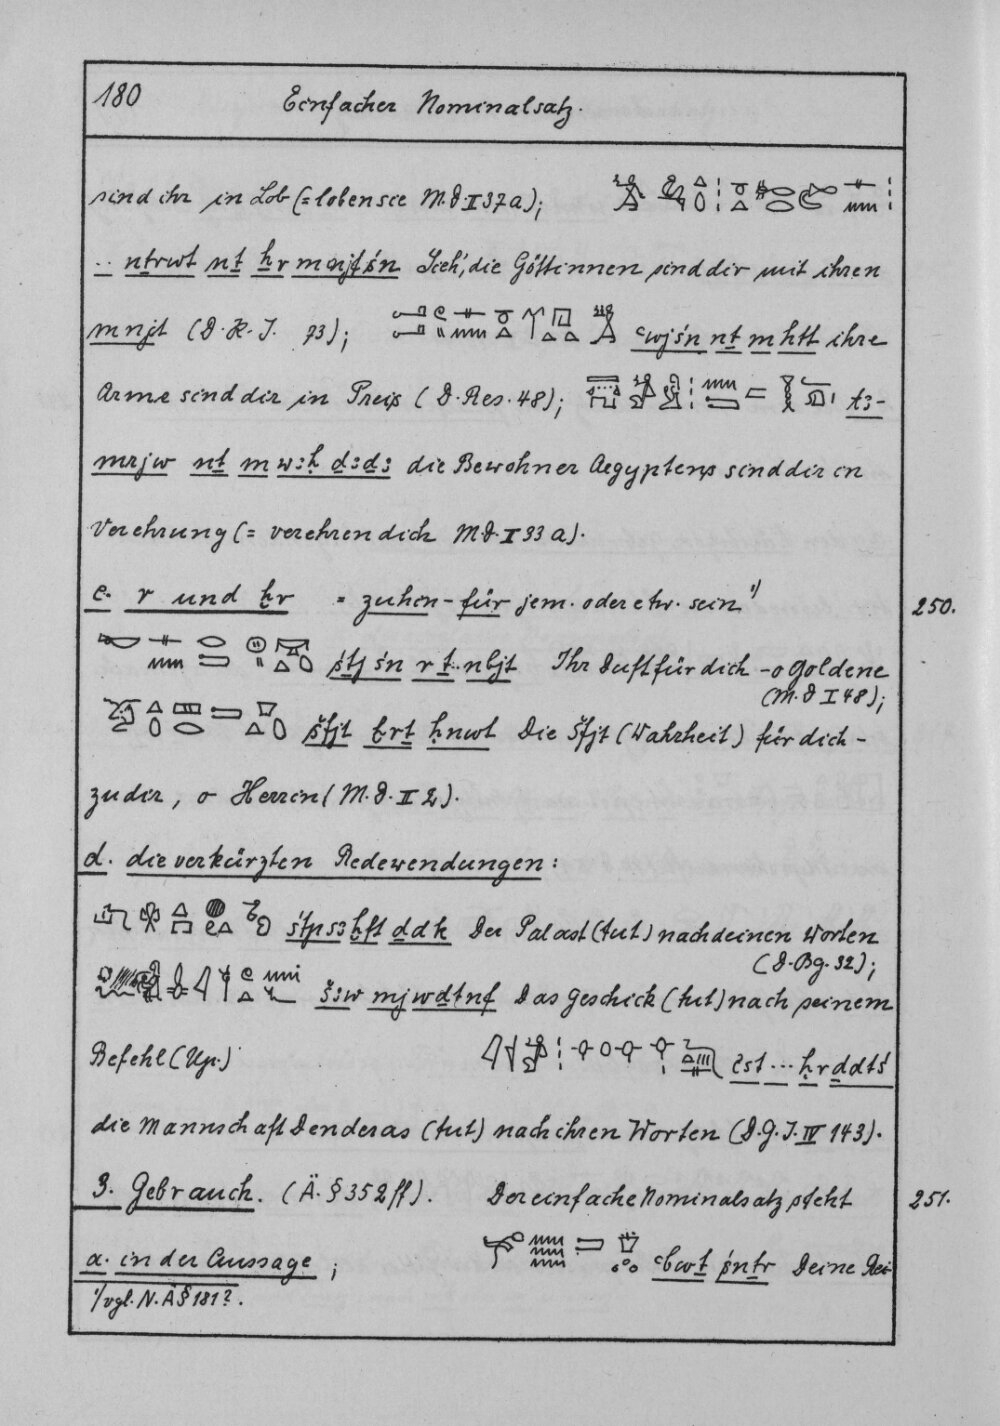 180 Einfacher Nominalsatz.
sind ihr in Lob (= loben sie M.D. II 37a);
.. nṯrwt nṯ ẖr mnjt śn Sieh', die Göttinnen sind dir mit ihren
mnjt (D.K.I. 73); ꜥwj śn nṯ m ḥtt ihre
Arme sind dir in Preis (D. Res. 48); tꜣ-
mrjw nṯ m wꜣḥ ḏꜣḏꜣ die Bewohner Aegyptens sind dir in
Verehrung (= verehren dich M.D. I 33a).
c. r und ḫr = zu hin - für jem. oder etw. sein 1) 250.
śtj śn r ṯ.. nbjt Ihr Duft für dich - o Goldene
(M.D. I 48);
šfjt ḫrṯ ḥnwt Die šfjt (Wahrheit) für dich -
zu dir, o Herrin (M.D. II 2).
d. die verkürzten Redewendungen:
śtpsꜣ ḫft ḏdk Der Palast (tut) nach deinen Worten
(D. Bg. 32);
šꜣw mj wḏtnf Das Geschick (tut) nach seinem
Befehl (Up.) ist ... ḥr ḏdtś
die Mannschaft Denderas (tut) nach ihren Worten (D.G.I. IV 143).
3. Gebrauch. (Ä. § 352 ff). Der einfache Nominalsatz steht 251.
a. in der Aussage; ꜥbwṯ śnṯr Deine Rei-
1) vgl. N.Ä § 181?.